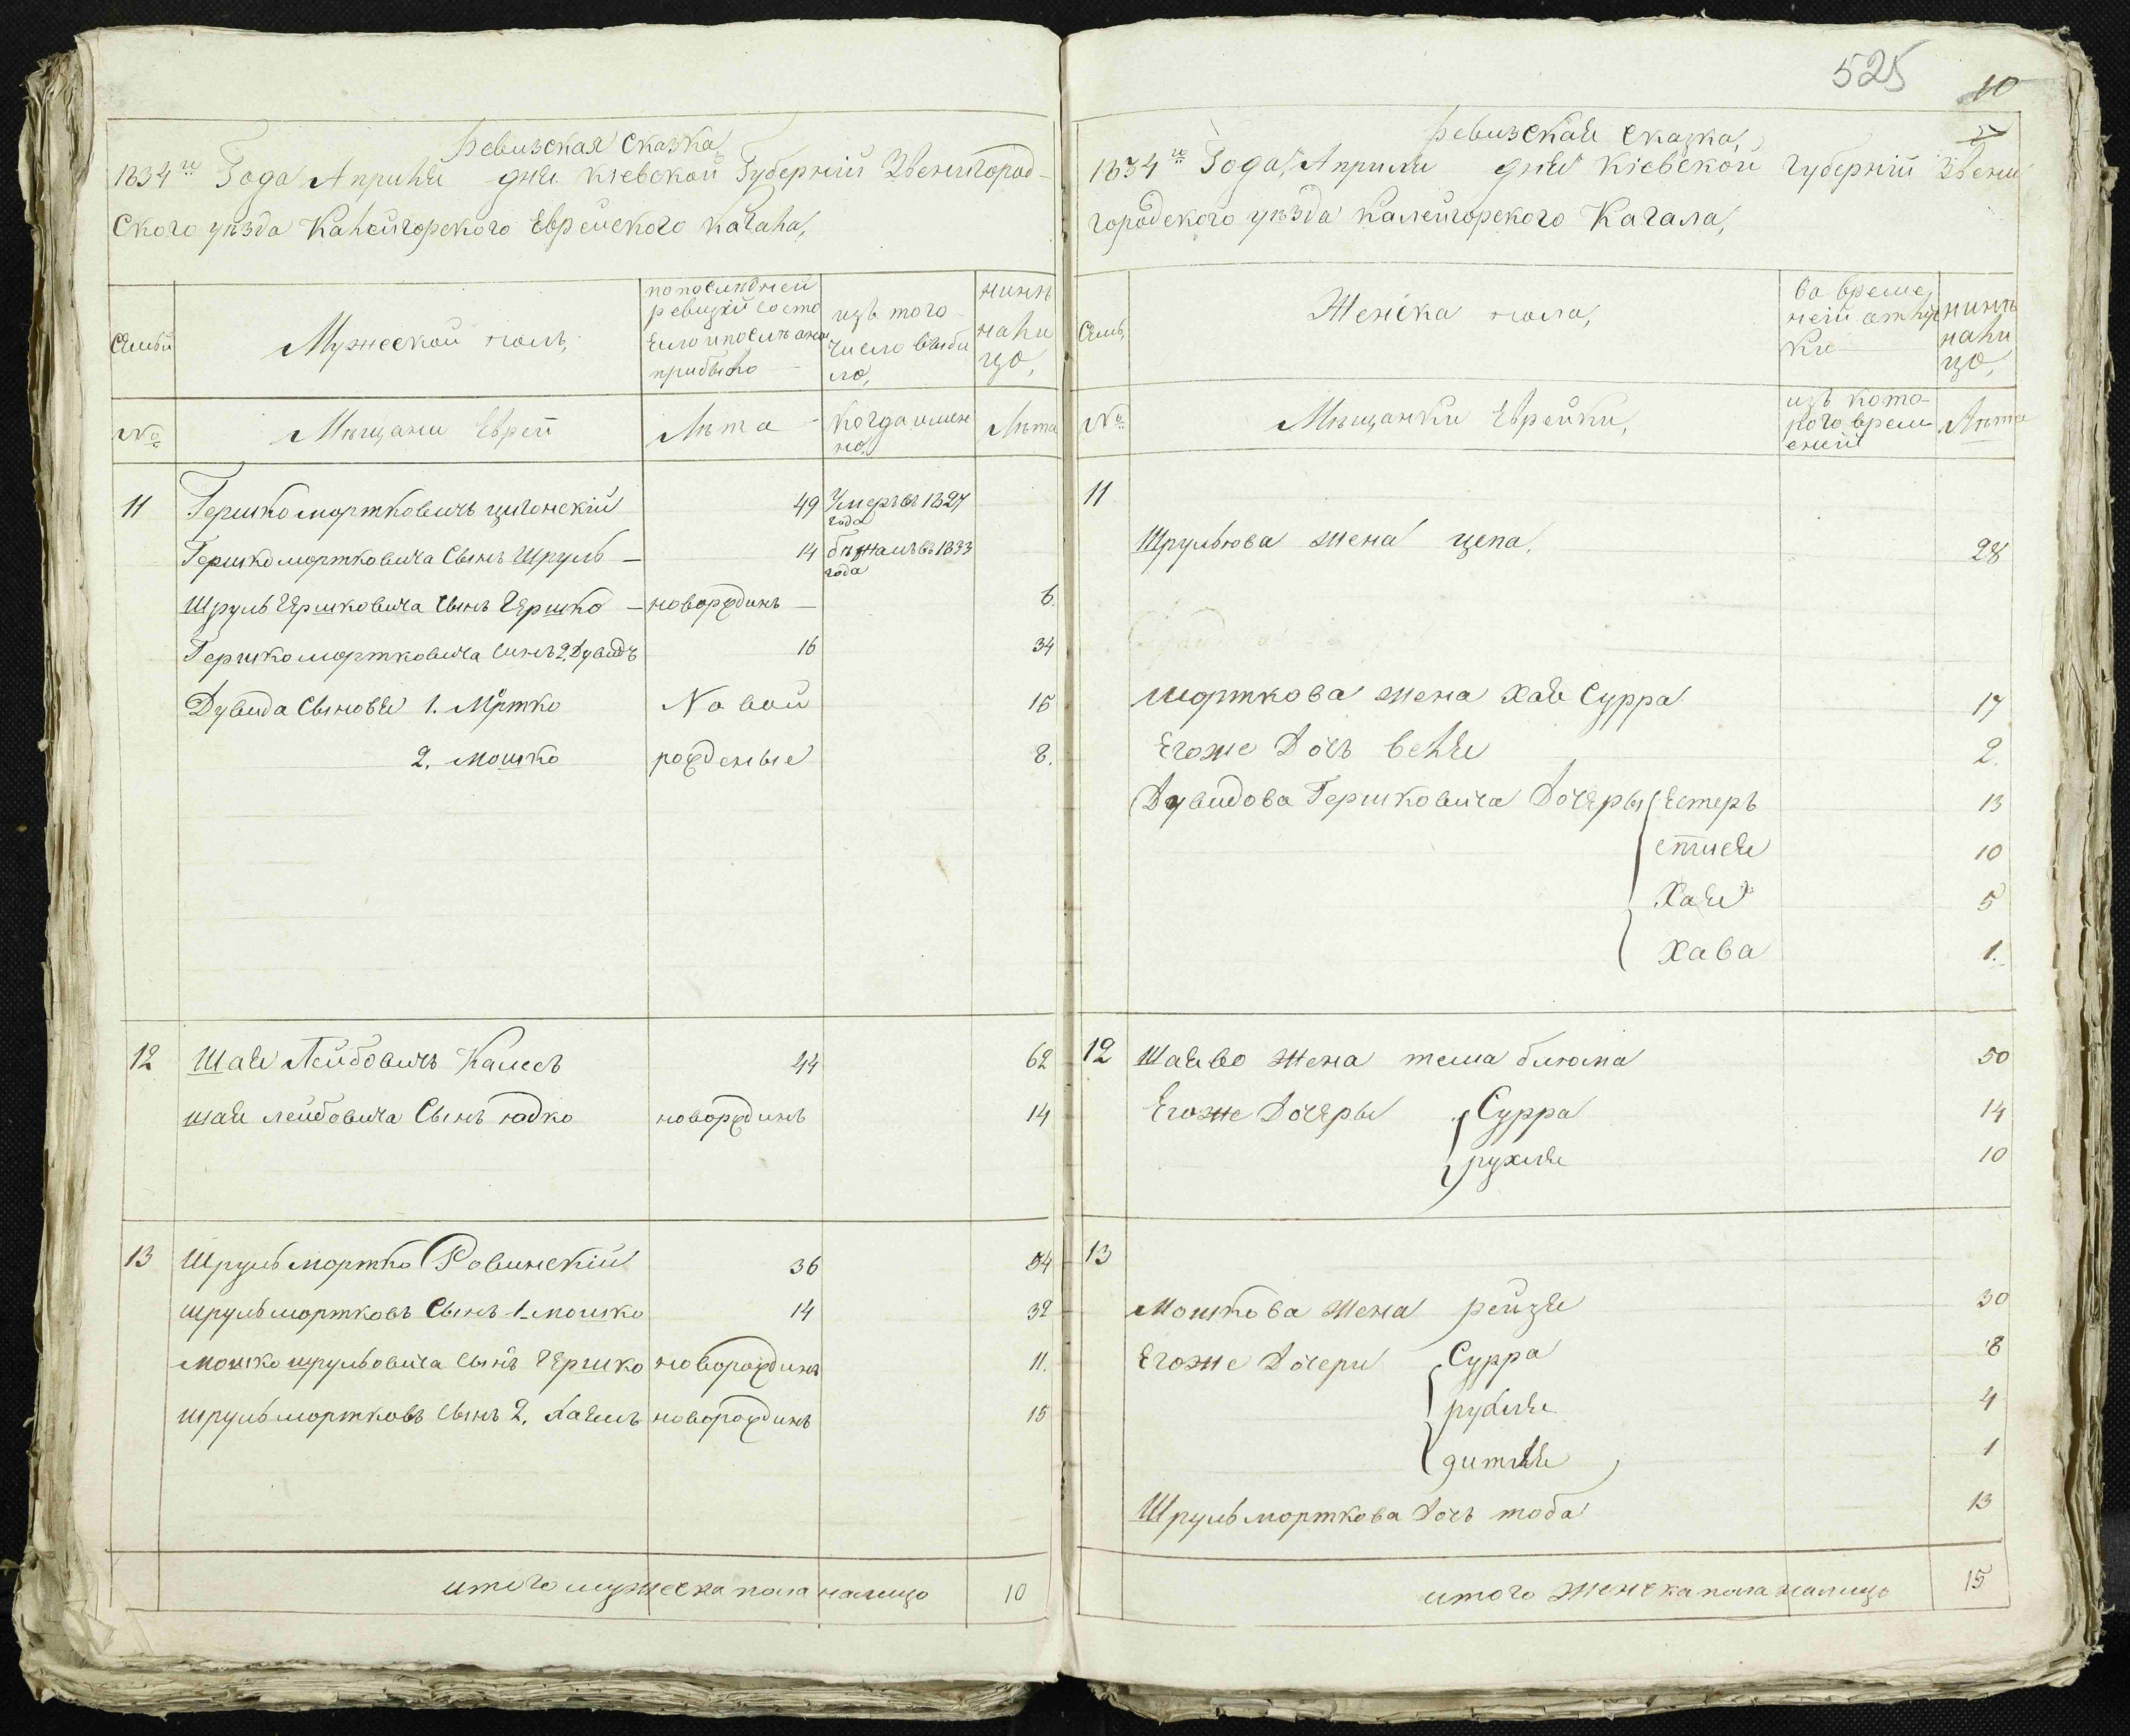 Ревизская сказка,
1834го Года Априля дня Кіевской Губерній Звенигород-
ского уѣзда Калейгорского Еврейского Кагала,
Семьи
Мужеской полъ,
по последней
ревизіи состо
яло и послѣ оной
прибыло
изъ того
число выбы
ло,
нинѣ
нали
цо,
№
Мѣщани Евреи
Лѣта
когда имен
но,
Лѣта
11 Гершко мортковичъ цигонскій 49 Умеръ въ 1827
года
Гершко мортковича Сынъ Шруль — 14 бѣжалъ въ 1833
года
Шруль Гершковича Сынъ Гершко — новорождинъ — 6.
Гершко мортковича синъ 2. Дувидъ 16 34
Дувида Сыновья 1. Мортко Новой 15
2. Мошко рожденые 8.
12 Шая Лейбовичъ Камесъ 44 62
шая лейбовича Сынъ юдко новорождинъ 14
13 Шруль мортко Ровинскій 36 54
шруль мортковъ Сынъ 1 мошко 14 32
мошко шрульовича сынъ Гершко новорождинъ 11.
шруль мортковъ сынъ 2. Хаемъ новорождинъ 15
итого мужеска пола налицо 10
525
10
Ревизская сказка,
1834го Года, Априля дня Кіевской Губерній Звени
городского уѣзда Калейгорского Кагала,
Семь,
Женска пола,
во време
ней отлуч
ки
нинѣ
нали
цо,
№
Мѣщанки Еврейки,
изъ кото-
рого врем
еней
Лѣта
11
Шрульова жена цепа. 28
морткова жена хая Сурра 17
Егоже Дочъ вейля 2.
Дувидова Гершковича Дочеры Естеръ 13
10
Хая 5
Хава 1.
12 Шаево жена тема блюма 50
Егоже Дочеры Сурра 14
рухля 10
13
Мошкова жена рейзя 30
Егоже Дочери Сурра 8
рухля 4
1
Шруль морткова Дочъ тоба 13
итого женска пола налицо 15